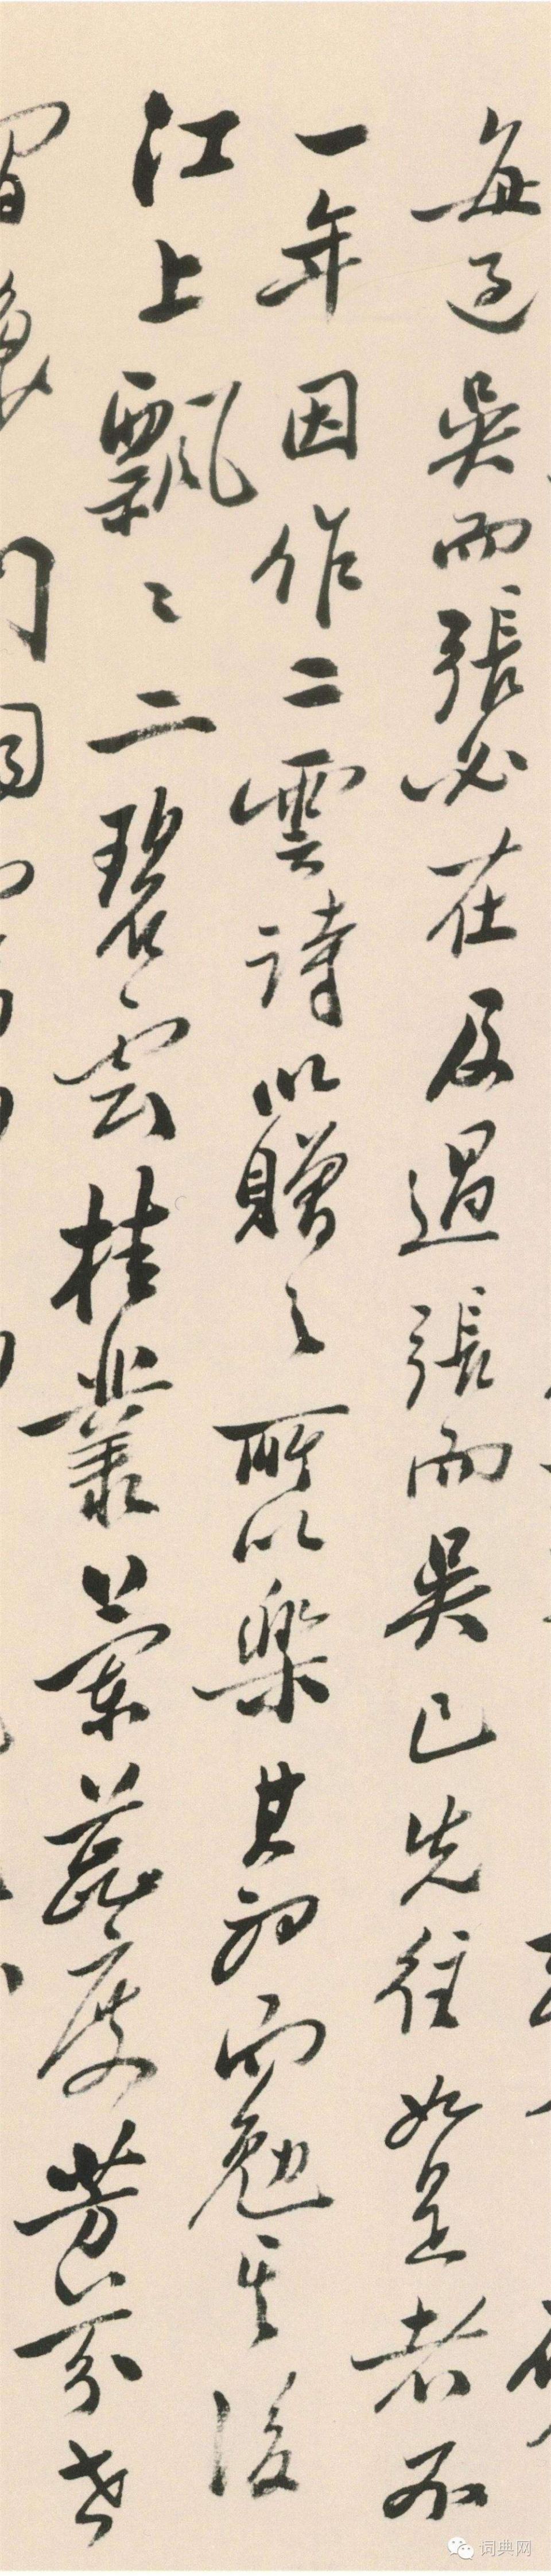 每過吳而張必在及過張而吳已先往如是者不
一年因作二雲詩以贈之所以樂其初而勉其後
江上飄〻二碧雲桂叢蘭蕊度芳芬世
词典网